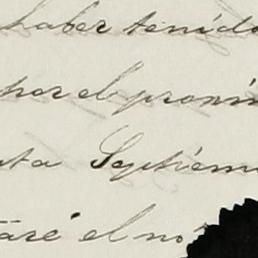 haber tenido
por el proxi
ta Septiem
taré el nó